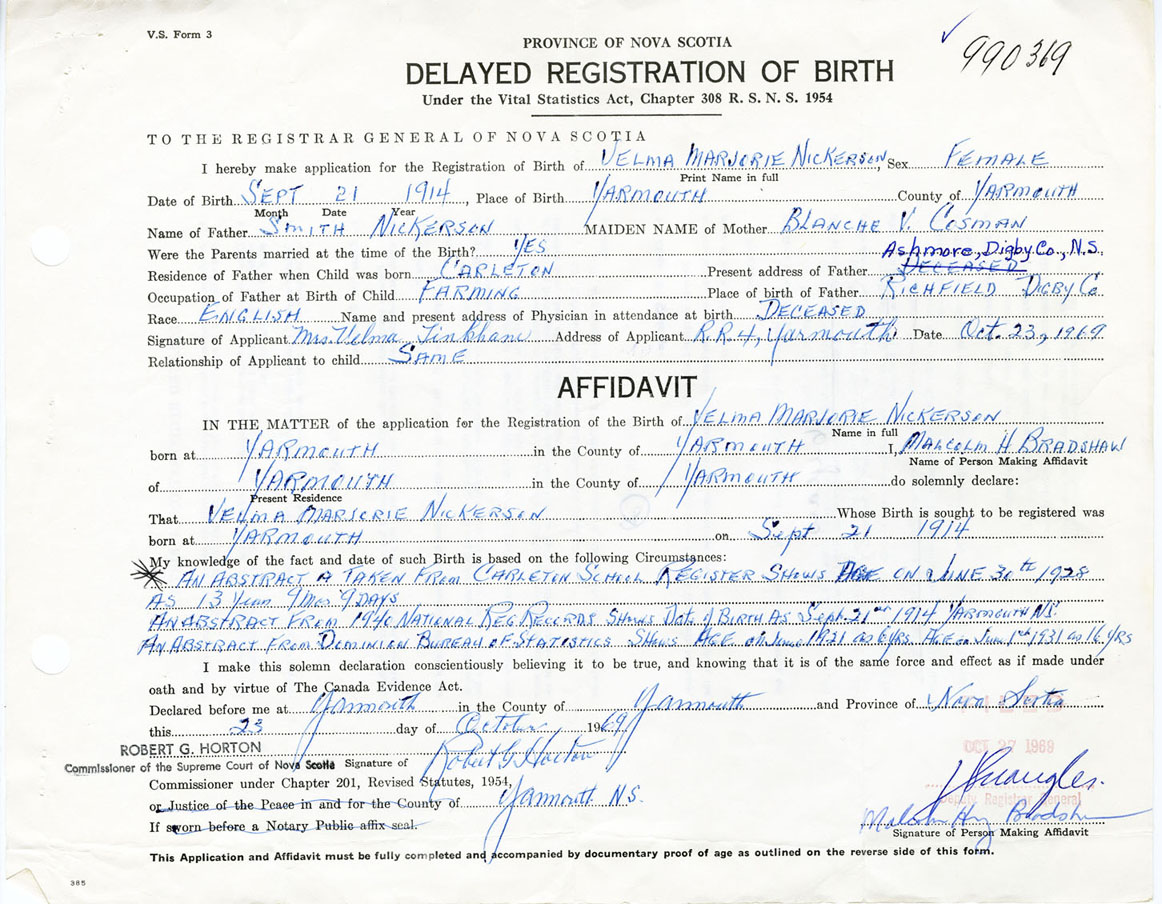 V.S. Form 3
990369
PROVINCE OF NOVA SCOTIA
DELAYED REGISTRATION OF BIRTH
Under the Vital Statistics Act, Chapter 308 R. S. N. S. 1954
TO THE REGISTRAR GENERAL OF NOVA SCOTIA
I hereby make application for the Registration of Birth of VELMA MARJORIE NICKERSON, Sex FEMALE
Print Name in full
Date of Birth SEPT 21 1914, Place of Birth YARMOUTH County of YARMOUTH
Month Date Year
Name of Father SMITH NICKERSON MAIDEN NAME of Mother BLANCHE V. COSMAN
Were the Parents married at the time of the Birth? YES Ashmore, Digby Co., N.S.
Residence of Father when Child was born CARLETON Present address of Father DECEASED
Occupation of Father at Birth of Child FARMING Place of birth of Father RICHFIELD DIGBY CO
Race ENGLISH Name and present address of Physician in attendance at birth DECEASED
Signature of Applicant Mrs. Velma Tinkham Address of Applicant R.R. 4, Yarmouth Date Oct. 23, 1969
Relationship of Applicant to child SAME
AFFIDAVIT
IN THE MATTER of the application for the Registration of the Birth of VELMA MARJORIE NICKERSON
Name in full
born at YARMOUTH in the County of YARMOUTH I, MALCOLM H BRADSHAW
Name of Person Making Affidavit
of YARMOUTH in the County of YARMOUTH do solemnly declare:
Present Residence
That VELMA MARJORIE NICKERSON Whose Birth is sought to be registered was
born at YARMOUTH on Sept 21 1914
My knowledge of the fact and date of such Birth is based on the following Circumstances:
AN ABSTRACT TAKEN FROM CARLETON SCHOOL REGISTER SHOWS AGE ON JUNE 30th 1928
AS 13 Years 9 Mos 9 DAYS
AN ABSTRACT FROM 1940 NATIONAL REG. RECORDS SHOWS Date of BIRTH AS Sept. 21st 1914 YARMOUTH N.S.
AN ABSTRACT FROM DOMINION BUREAU OF STATISTICS SHOWS AGE on June 1921 as 6 yrs. AGE on June 1st 1931 as 16 yrs
I make this solemn declaration conscientiously believing it to be true, and knowing that it is of the same force and effect as if made under
oath and by virtue of The Canada Evidence Act.
Declared before me at Yarmouth in the County of Yarmouth and Province of Nova Scotia
this 23 day of October, 1969
OCT 27 1969
ROBERT G. HORTON
Commissioner of the Supreme Court of Nova Scotia Signature of Robert G Horton
Commissioner under Chapter 201, Revised Statutes, 1954,
or Justice of the Peace in and for the County of Yarmouth N.S.
Deputy Registrar General
If sworn before a Notary Public affix seal.
Malcolm Bradshaw
Signature of Person Making Affidavit
This Application and Affidavit must be fully completed and accompanied by documentary proof of age as outlined on the reverse side of this form.
385